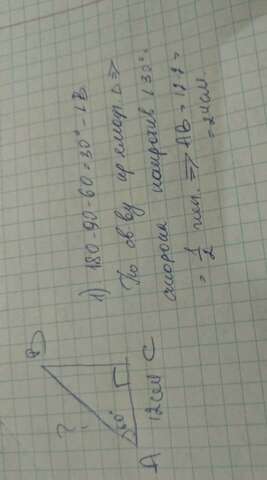 B
?
60°
A 12см C
1) 180-90-60=30° - ∠B
По св ву пр
сторона напротив ∠30° =
= 1/2 гип. ⇒ AB = 12·2 =
= 24см